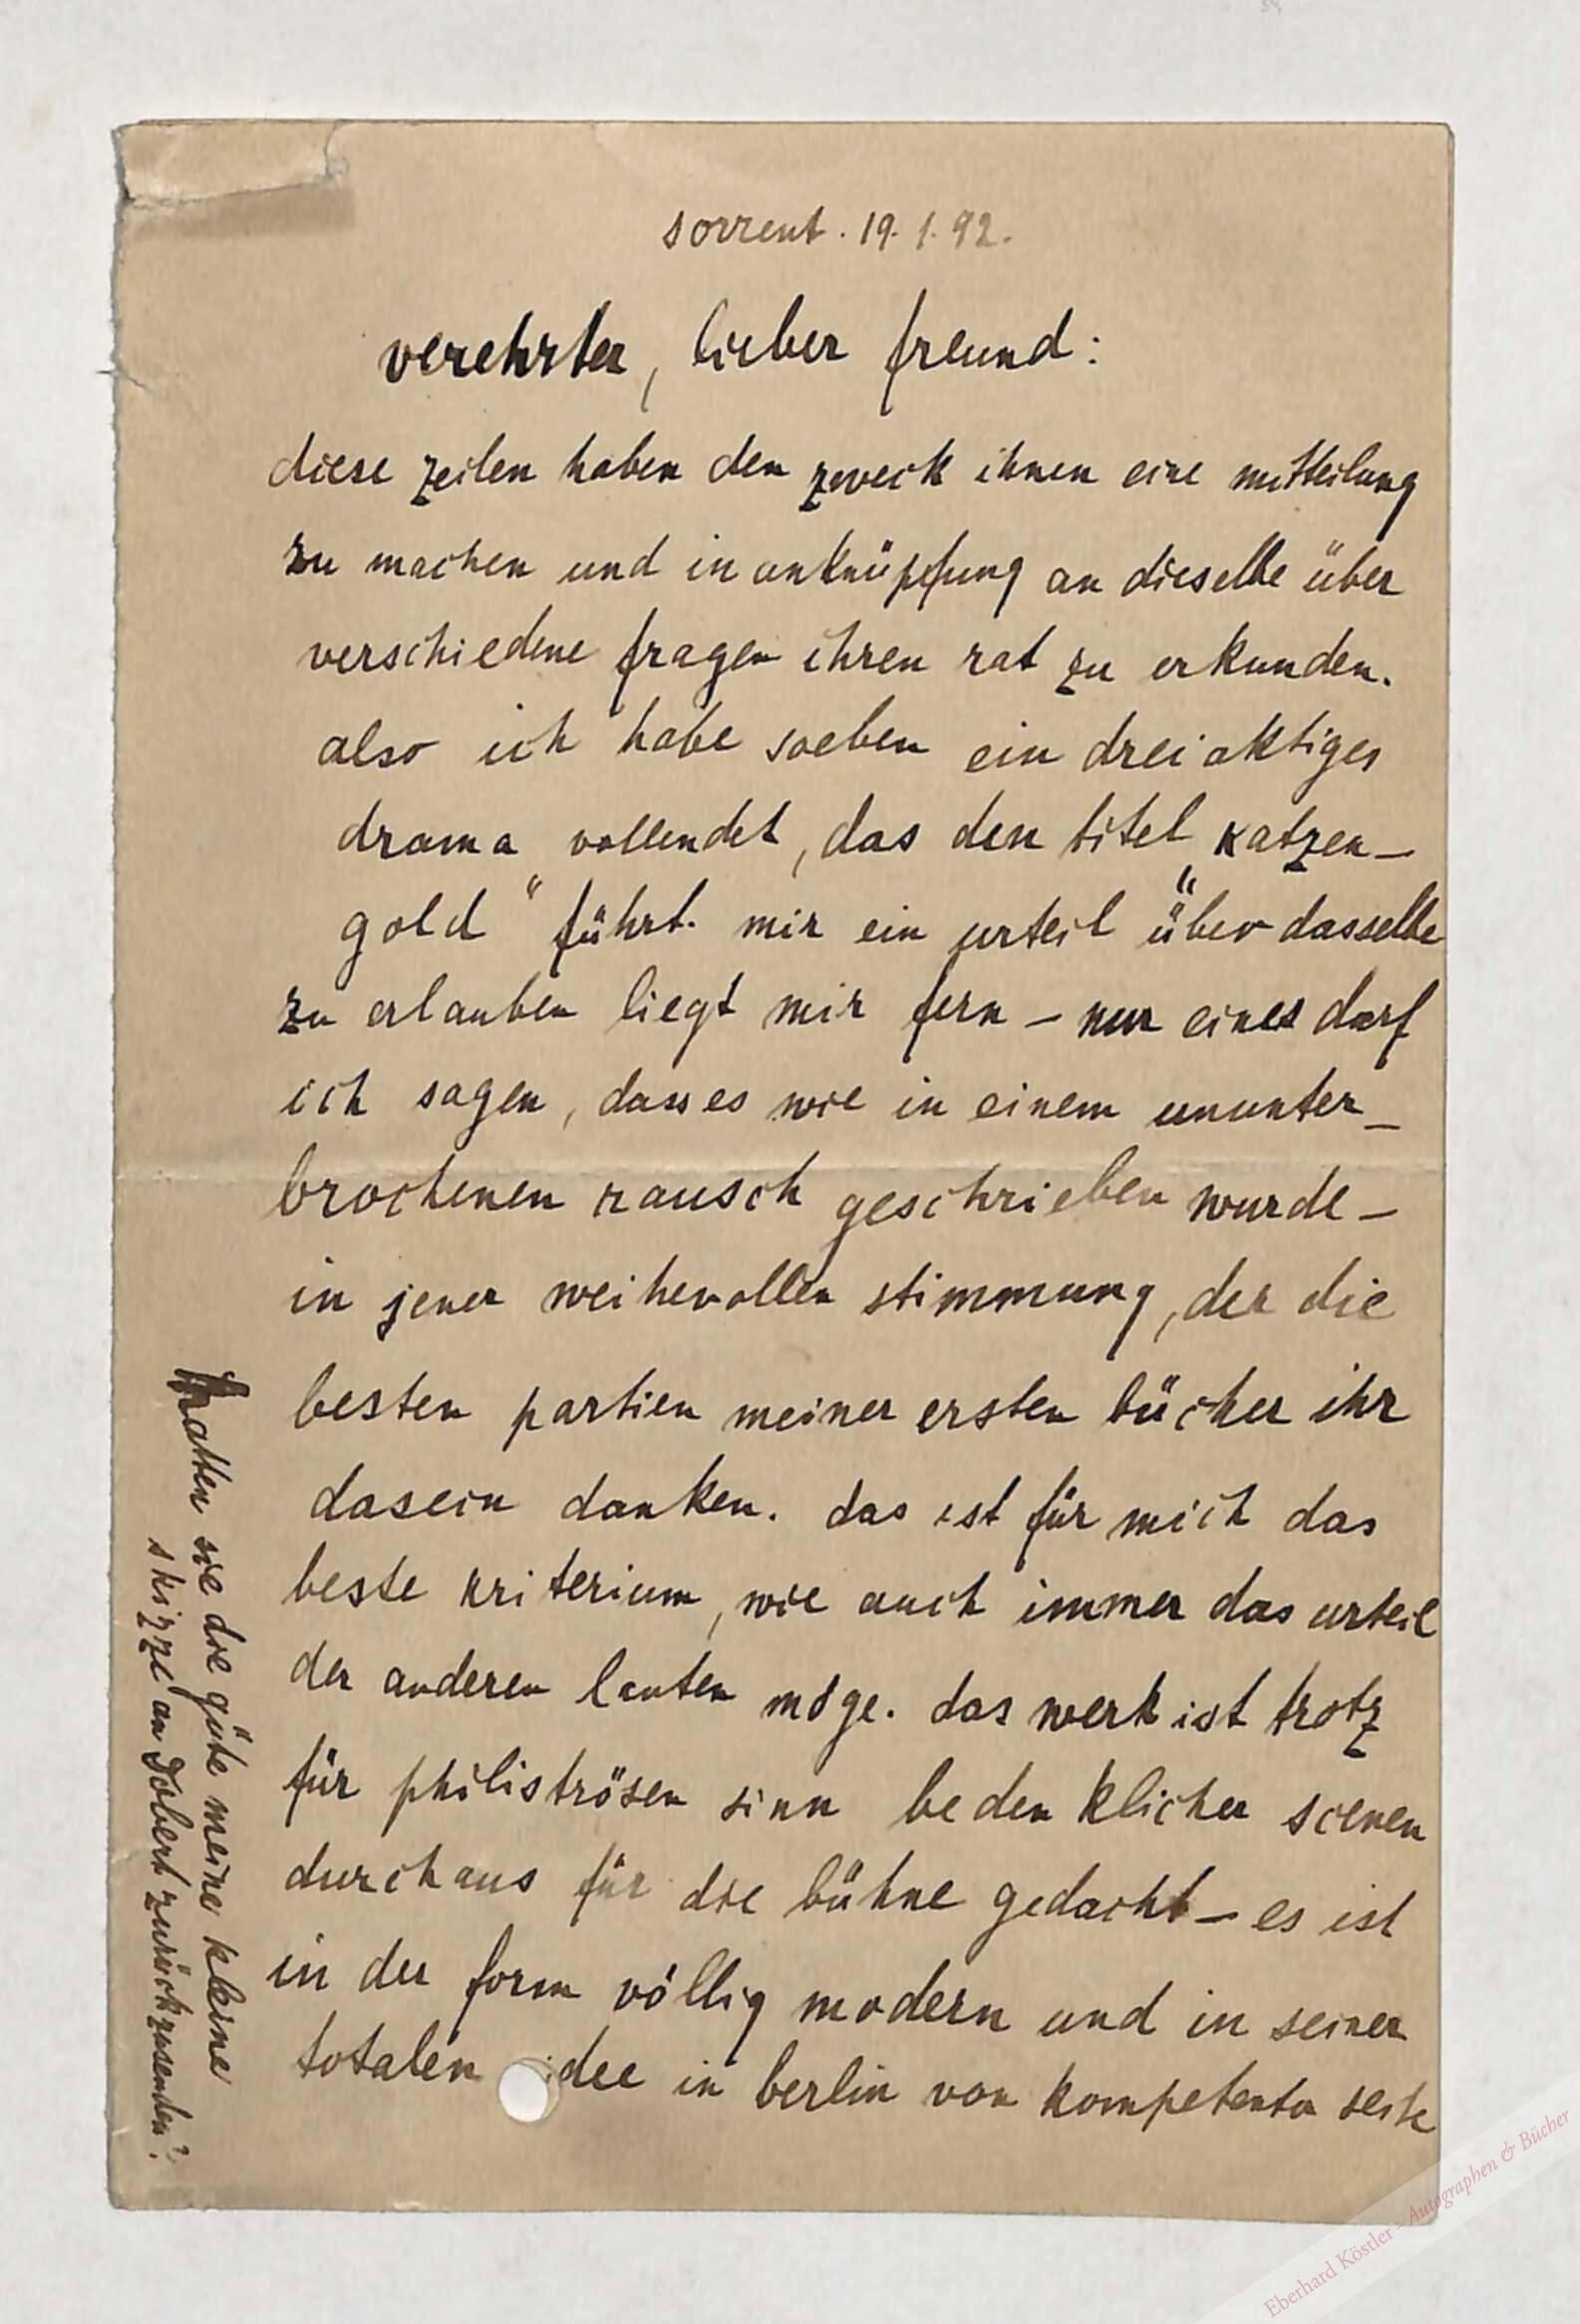 sorrent. 19. 1. 92.
verehrter, lieber freund:
diese zeilen haben den zweck ihnen eine mitteilung
zu machen und in anknüpfung an dieselbe über
verschiedene fragen ihren rat zu erkunden.
also ich habe soeben ein dreiaktiges
drama vollendet, das den titel „katzen-
gold“ führt. mir ein urteil über dasselbe
zu erlauben liegt mir fern – nur eines darf
ich sagen, dass es wie in einem ununter-
brochenen rausch geschrieben wurde –
in jener weihevollen stimmung, der die
besten partien meiner ersten bücher ihr
dasein danken. das ist für mich das
beste kriterium, wie auch immer das urteil
der anderen lauten möge. das werk ist trotz
für philiströsen sinn bedenklicher scenen
durchaus für die bühne gedacht – es ist
in der form völlig modern und in seiner
totalen idee in berlin von kompetenter seite
hatten sie die güte meine kleine
skizze an Dobert zurückzusenden?
Eberhard Köstler – Autographen & Bücher